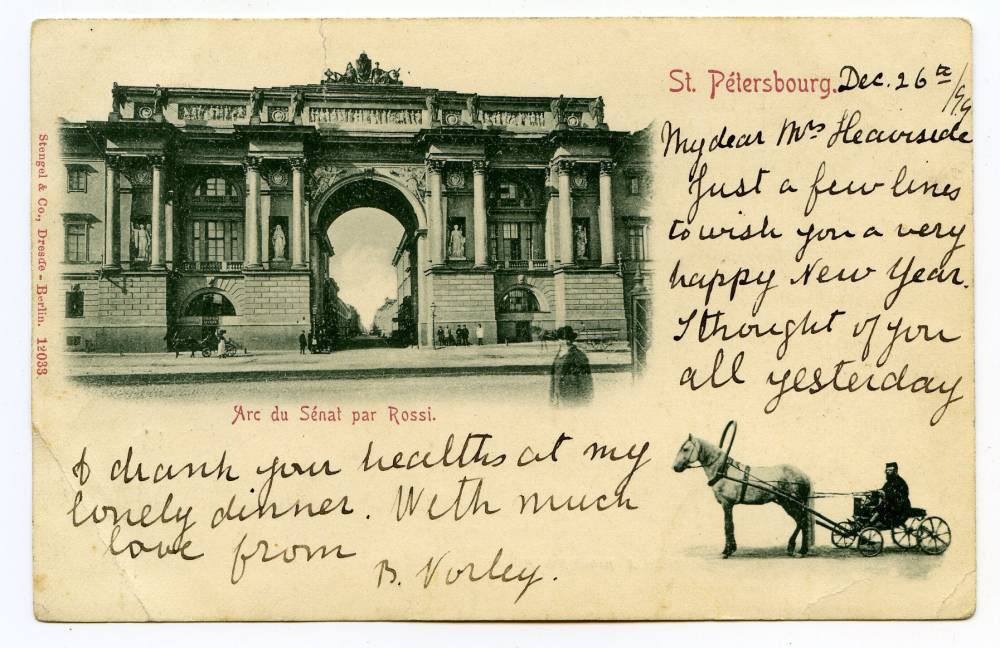 St. Pétersbourg. Dec. 26th/99
My dear Mrs Heaviside
Just a few lines
to wish you a very
happy New Year.
I thought of you
all yesterday
& drank your healths at my
lonely dinner. With much
love from
B. Vorley.
Arc du Sénat par Rossi.
Stengel & Co., Dresde-Berlin. 12033